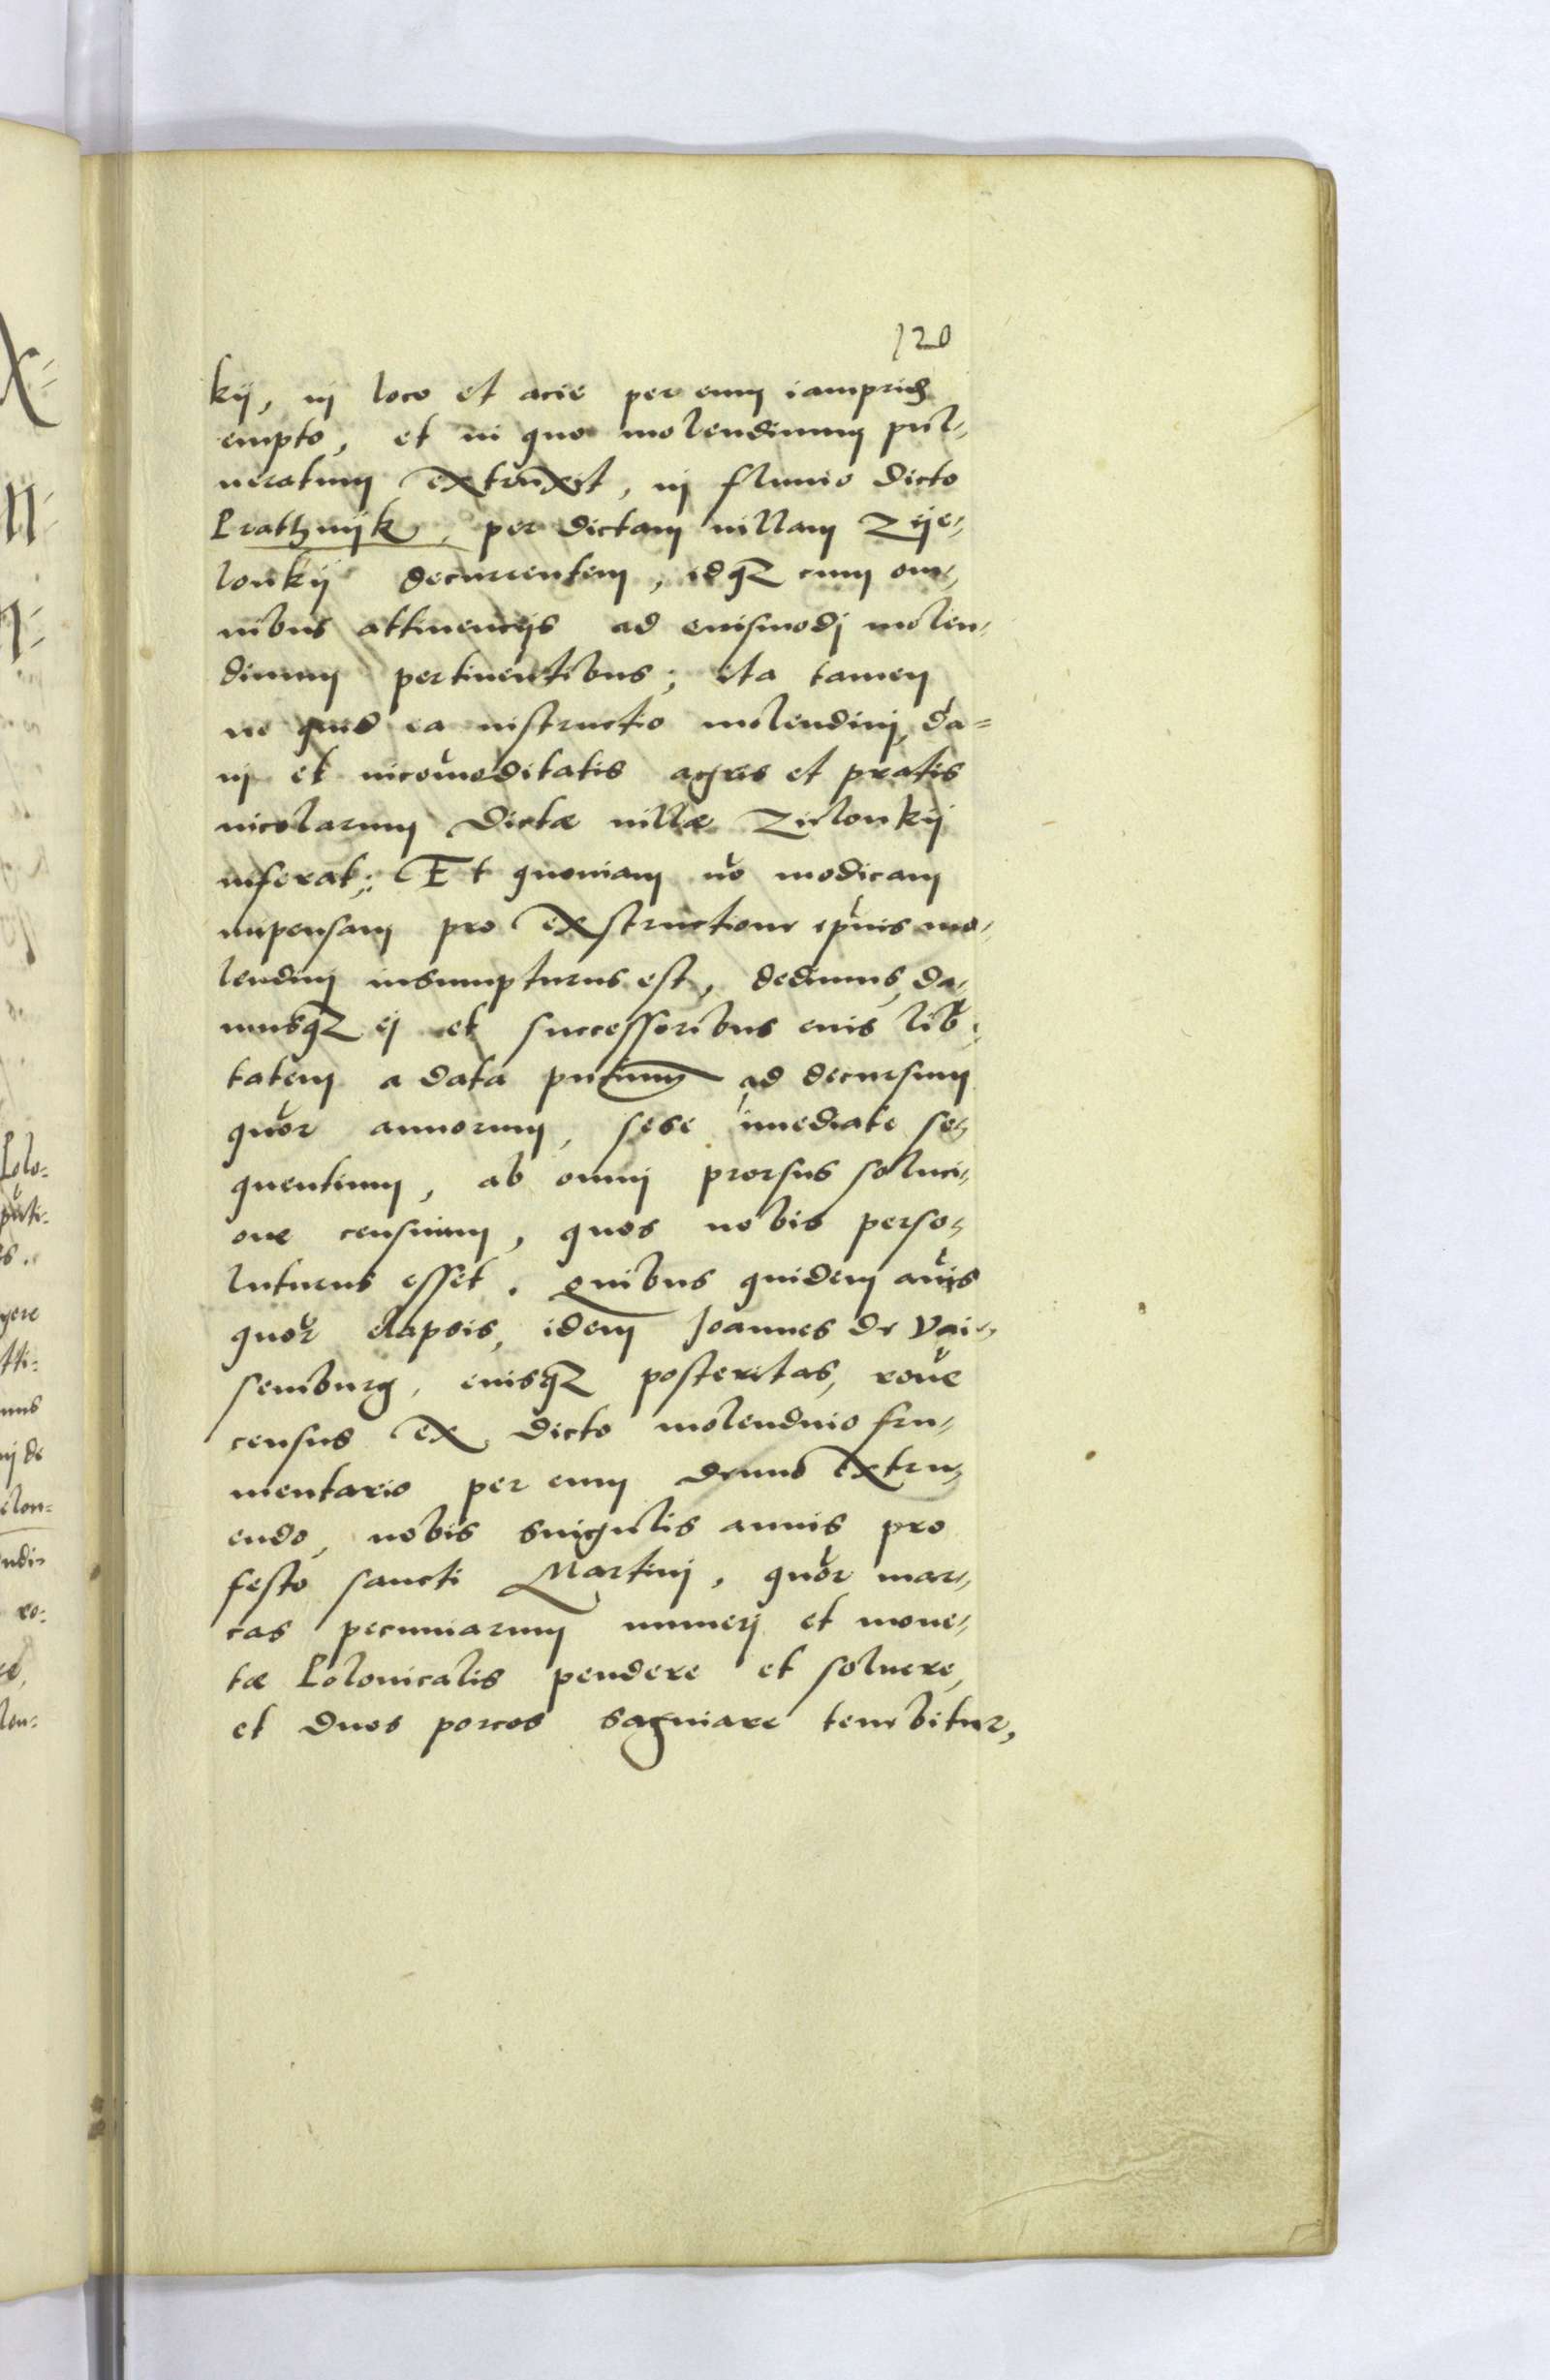 120
kij, in loco et acie per eum iamprid
empto, et in quo molendinum pul-
ueratum extruxit, in fluuio dicto
Prathnijk, per dictam uillam Zije-
lonkij decurrentem, idqz cum om-
nibus attinencijs ad euismodj molen-
dinum pertinentibus; ita tamen
ne quid ea instructio molendinj, da-
nj et incomoditatis agris et pratis
incolarum dictæ uillæ Zielonkij
inferat; Et quoniam no modicam
impensam pro exstructione ipius mo-
lendinj insumpturus est, dedimus, da-
musqz ej et successoribus euis lib-
tatem a data pntium ad decursum
quor annorum, sese imediate se-
quentium, ab omnj prorsus soluci-
one censuum, quos nobis perso-
luturus esset. Quibus quidem anis
quor elapsis, idem Joannes de Vai-
semburg, euisqz posteritas, rone
census ex dicto molendino fru-
mentario per eum denuo extru-
endo, nobis singulis annis pro
festo sancti Martinj, quor mar-
cas pecuniarum numerj et mone-
tæ Polonicalis pendere et soluere,
et duos porcos saginare tenebitur,